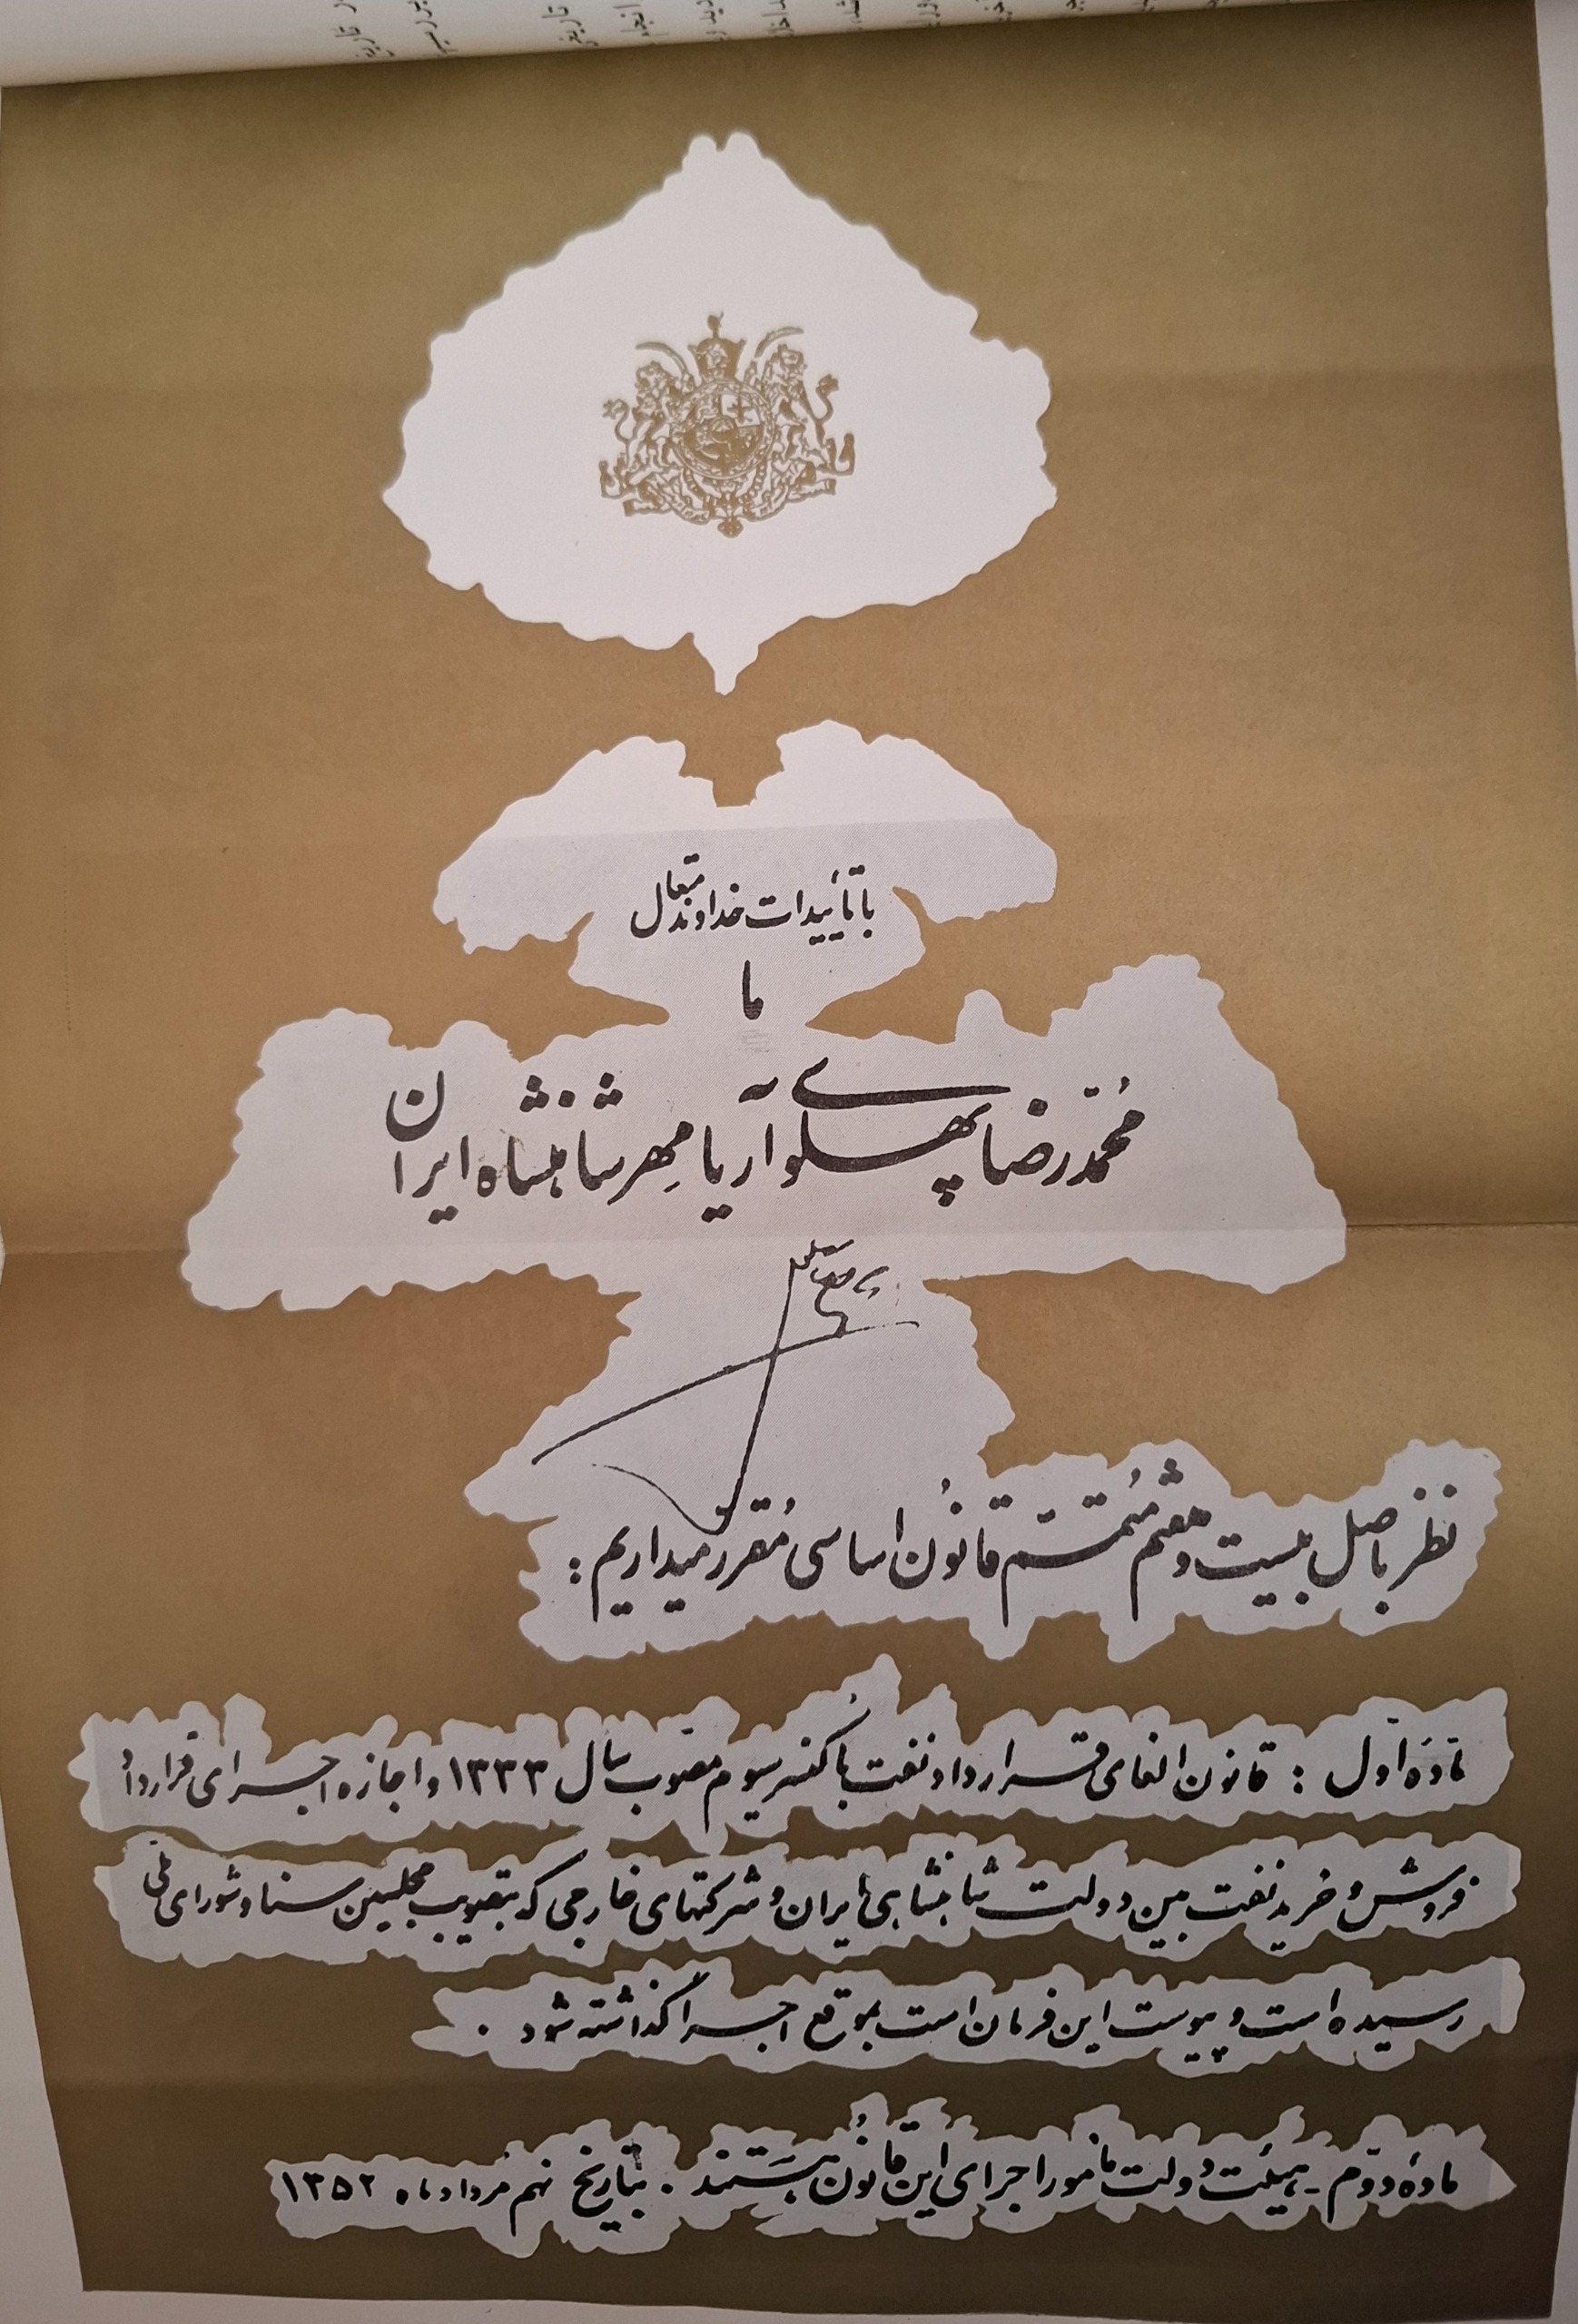 با تأییدات خداوند متعال
ما
مُحمّدرضا پهلوی آریامهر شاهنشاه ایران
نظر باصل بیست و هفتم مُتمّم قانُون اساسی مُقرر میداریم :
مادّه اوّل : قانون الغای قرارداد نفت با کنسرسیوم مصوب سال ۱۳۳۳ و اجازه اجرای قرارداد
فروش و خرید نفت بین دولت شاهنشاهی ایران و شرکتهای خارجی که بتصویب مجلسین سنا و شورای ملی
رسیده است و پیوست این فرمان است بموقع اجرا گذاشته شود .
مادهٔ دوّم - هیئت دولت مأمور اجرای این قانُون هستند . بتاریخ نهم مُرداد ماه ۱۳۵۲